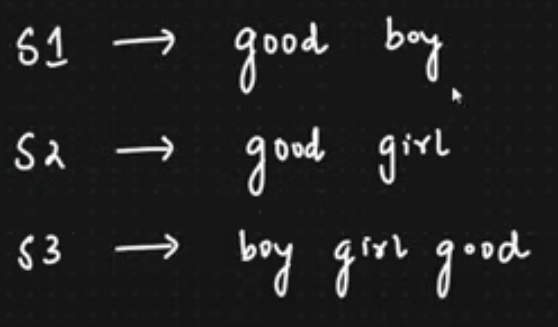 S1 → good boy
S2 → good girl
S3 → boy girl good